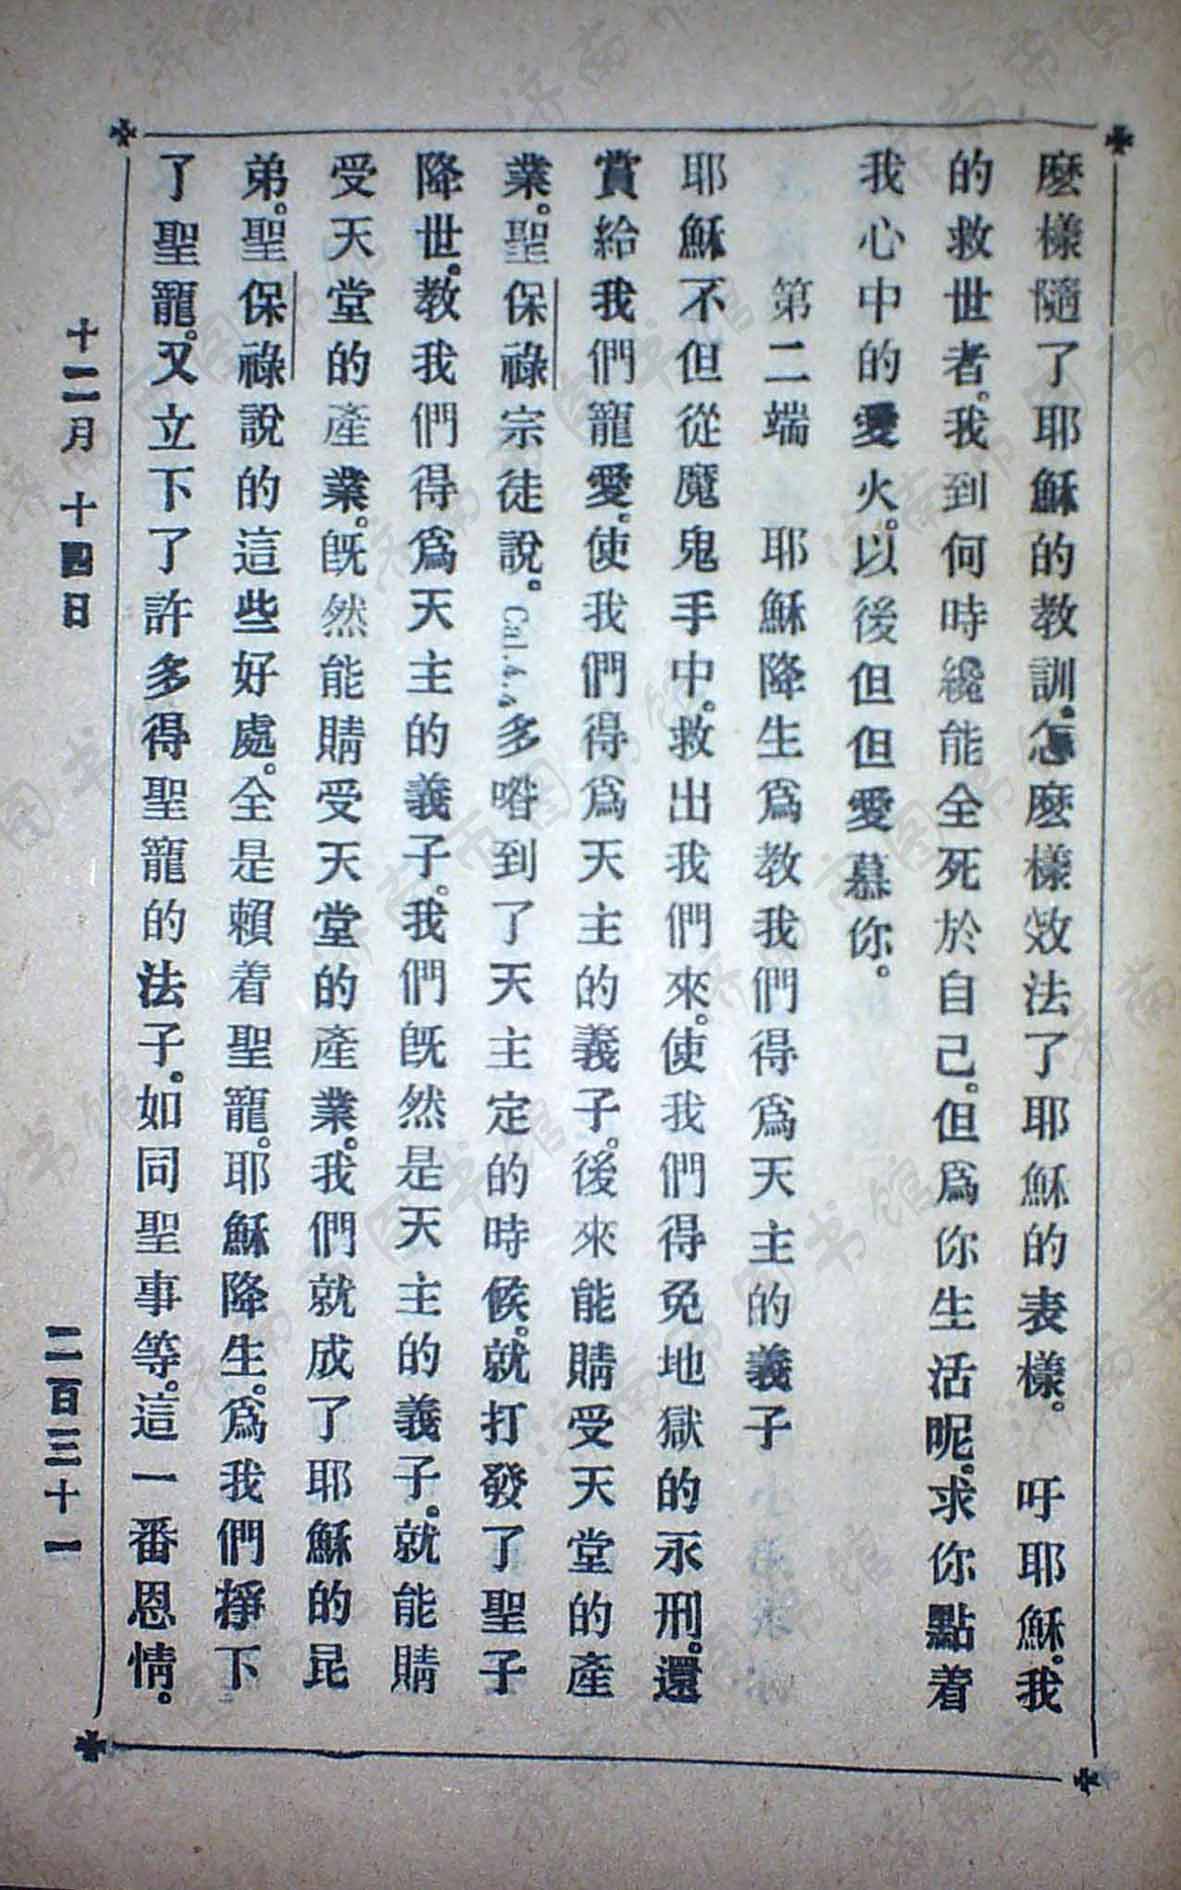 麽樣隨了耶穌的教訓。怎麽樣效法了耶穌的表樣。　吁耶穌。我
的救世者。我到何時纔能全死於自己。但爲你生活呢。求你點着
我心中的愛火。以後但但愛慕你。
第二端　耶穌降生爲教我們得爲天主的義子
耶穌不但從魔鬼手中。救出我們來。使我們得免地獄的永刑。還
賞給我們寵愛。使我們得爲天主的義子。後來能賙受天堂的產
業。聖保祿宗徒說。Gal.4.4多喒到了天主定的時候。就打發了聖子
降世。教我們得爲天主的義子。我們旣然是天主的義子。就能賙
受天堂的產業。旣然能賙受天堂的產業。我們就成了耶穌的昆
弟。聖保祿說的這些好處。全是賴着聖寵。耶穌降生。爲我們掙下
了聖寵。又立下了許多得聖寵的法子。如同聖事等。這一番恩情。
十二月　十四日
二百三十一